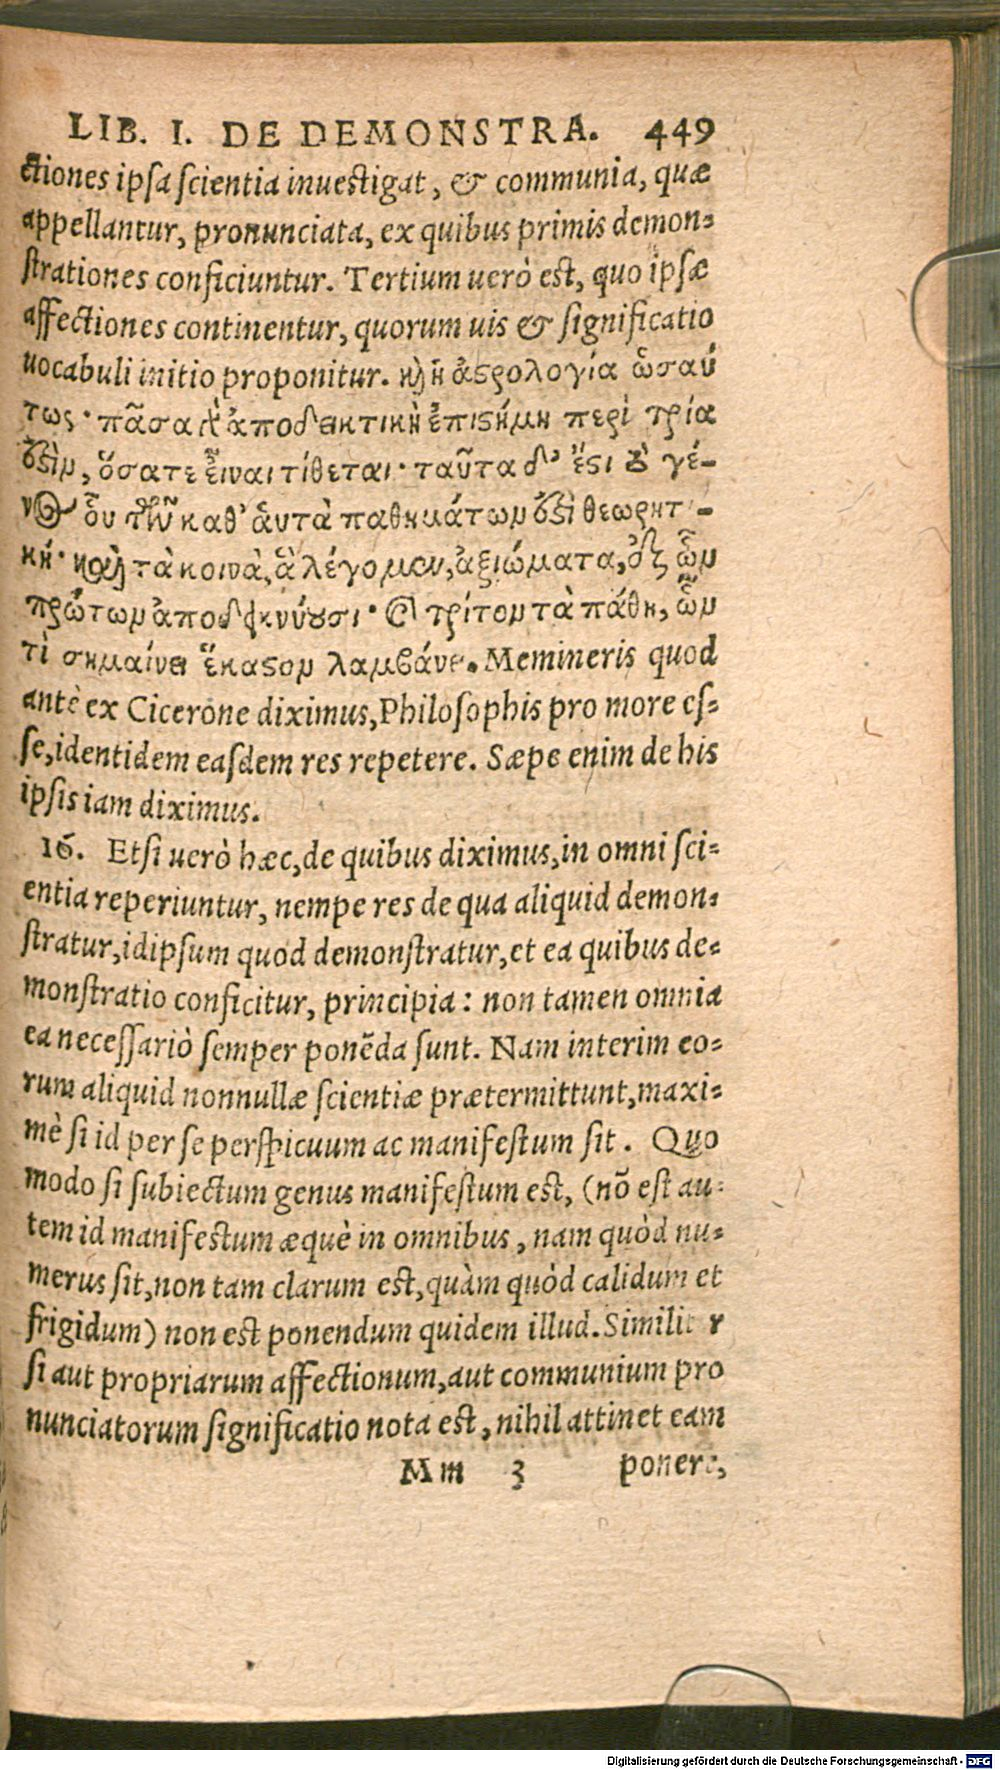 LIB. I. DE DEMONSTRA. 449
ctiones ipsa scientia inuestigat, & communia, quæ
appellantur, pronunciata, ex quibus primis demon-
strationes conficiuntur. Tertium uerò est, quo ipsæ
affectiones continentur, quorum uis & significatio
uocabuli initio proponitur. καὶ ἡ ἀστρολογία ὡσαύ
τως· πᾶσα γὰρ ἀποδεικτικὴ ἐπιστήμη περὶ τρία
ἐστὶν, ὅσα τε εἶναι τίθεται· ταῦτα δ' ἔστι τὸ γέ-
νος οὗ τῶν καθ' αὑτὰ παθημάτων ἐστὶ θεωρητι-
κή· καὶ τὰ κοινὰ, ἃ λέγομεν, ἀξιώματα, ἐξ ὧν
πρώτων ἀποδεικνύουσι· καὶ τρίτον τὰ πάθη, ὧν
τί σημαίνει ἕκαστον λαμβάνει. Memineris quod
antè ex Cicerone diximus, Philosophis pro more es-
se, identidem easdem res repetere. Sæpe enim de his
ipsis iam diximus.
16. Etsi uerò hæc, de quibus diximus, in omni sci-
entia reperiuntur, nempe res de qua aliquid demon-
stratur, idipsum quod demonstratur, et ea quibus de-
monstratio conficitur, principia: non tamen omnia
ea necessariò semper ponēda sunt. Nam interim eo-
rum aliquid nonnullæ scientiæ prætermittunt, maxi-
mè si id per se perspicuum ac manifestum sit. Quo
modo si subiectum genus manifestum est, (nō est au-
tem id manifestum æquè in omnibus, nam quòd nu-
merus sit, non tam clarum est, quàm quòd calidum et
frigidum) non est ponendum quidem illud. Similiter
si aut propriarum affectionum, aut communium pro
nunciatorum significatio nota est, nihil attinet eam
Mm 3 ponere,
Digitalisierung gefördert durch die Deutsche Forschungsgemeinschaft - DFG